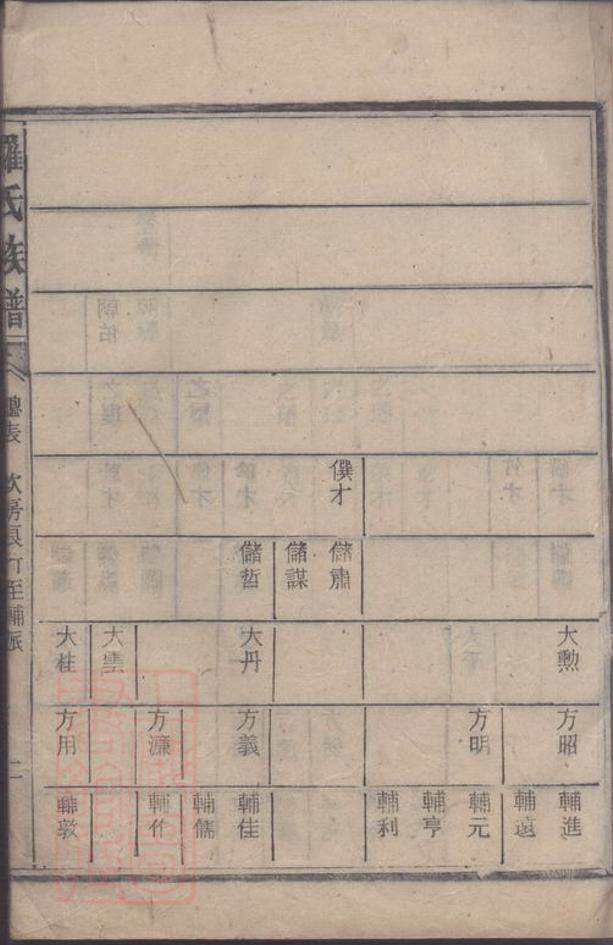 僎才
儲肅
儲謀
儲哲
大勲
大丹
大雲
大桂
方昭
方明
方義
方濂
方用
輔進
輔遠
輔元
輔亨
輔利
輔佳
輔儒
輔作
輔敦
羅氏族譜
總表 次房良 可至輔派
二